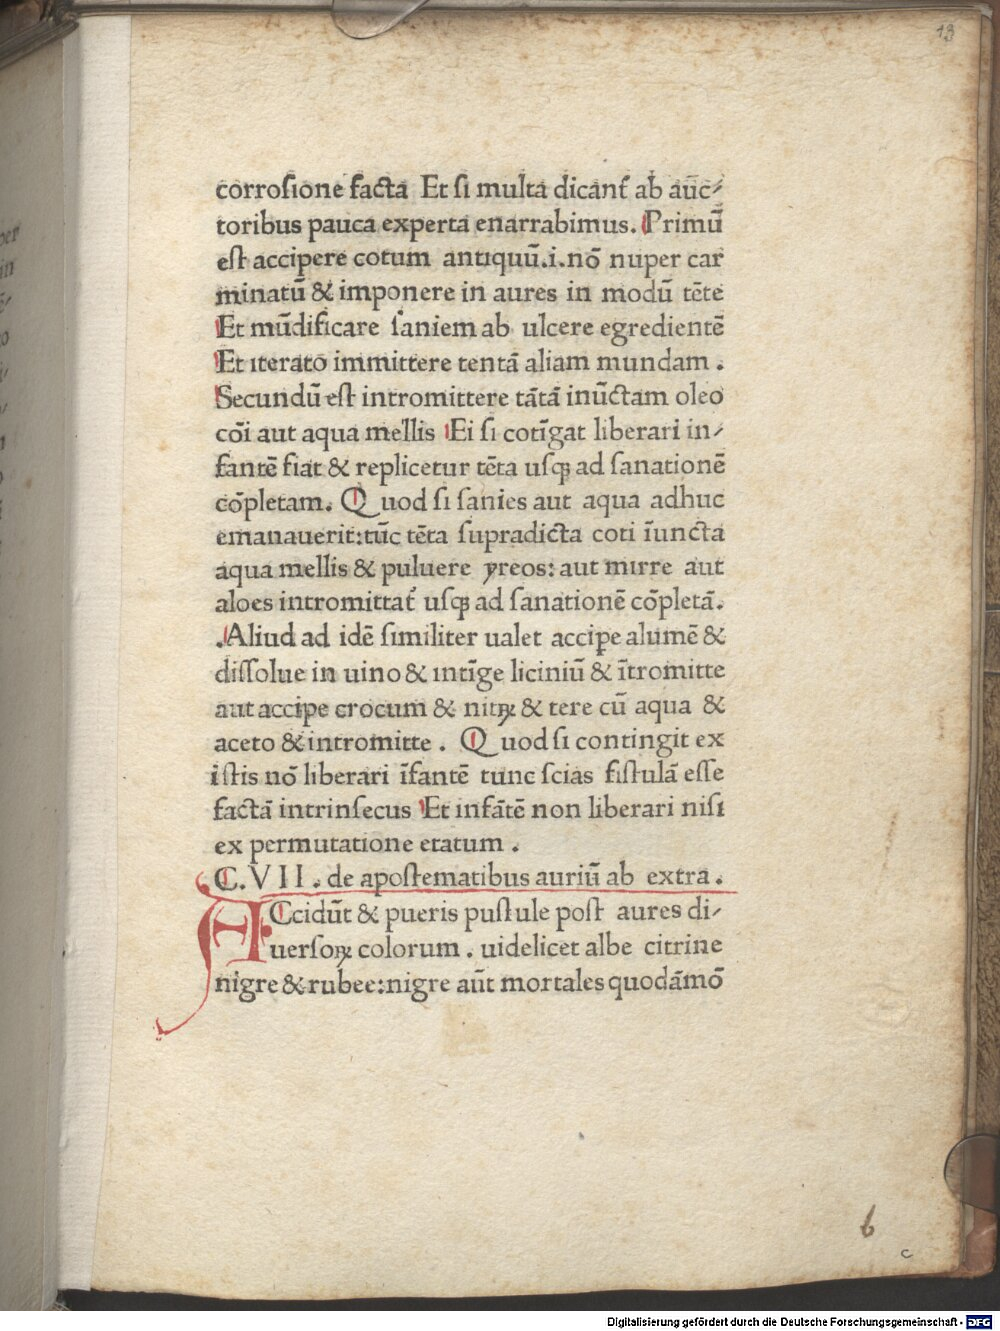 13
corrosione facta Et si multa dicant᷑ ab auc̄⸗
toribus pauca experta enarrabimus. Primū
est accipere cotum antiquū.i.nō nuper car
minatū & imponere in aures in modū tēte
Et mūdificare saniem ab ulcere egredientē
Et iterato immittere tentā aliam mundam .
Secundū est intromittere tātā inūctam oleo
cōi aut aqua mellis Ei si cotīgat liberari in⸗
fantē fiat & replicetur tēta usqꝫ ad sanationē
cōpletam. Quod si sanies aut aqua adhuc
emanauerit:tūc tēta supradicta coti īuncta
aqua mellis & puluere yreos: aut mirre aut
aloes intromittat᷑ usqꝫ ad sanationē cōpletā.
.Aliud ad idē similiter ualet accipe alumē &
dissolue in uino & intīge liciniū & ītromitte
aut accipe crocum & nitꝝ & tere cū aqua &
aceto & intromitte . Quod si contingit ex
istis nō liberari īfantē tunc scias fistulā esse
factā intrinsecus Et infātē non liberari nisi
ex permutatione etatum .
C.VII. de apostematibus auriū ab extra .
ACcidūt & pueris pustule post aures di⸗
uersoꝝ colorum . uidelicet albe citrine
nigre & rubee:nigre aūt mortales quodāmō
b
c
Digitalisierung gefördert durch die Deutsche Forschungsgemeinschaft - DFG